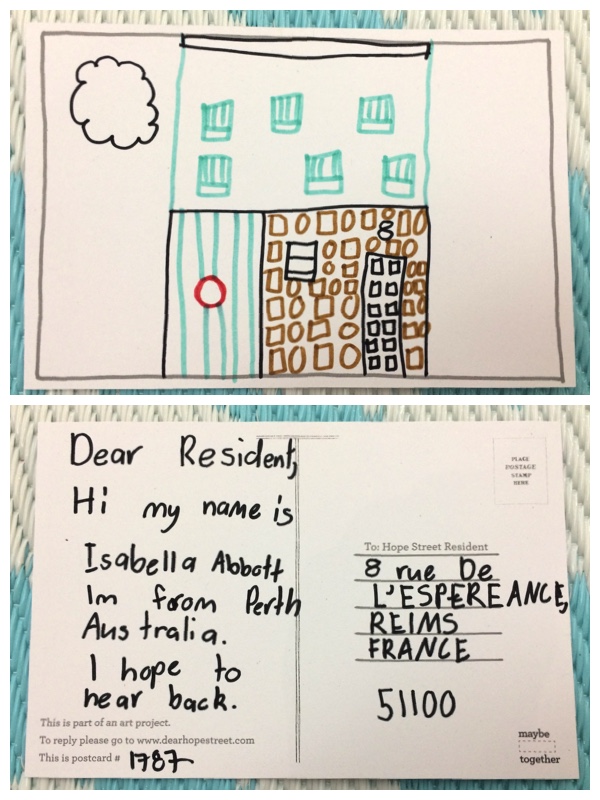 8
Dear Resident,
Hi my name is
Isabella Abbott
Im from Perth
Australia.
I hope to
hear back.
This is part of an art project.
To reply please go to www.dearhopestreet.com
This is postcard # 1787
PLACE
POSTAGE
STAMP
HERE
To: Hope Street Resident
8 rue De
L'ESPEREANCE,
REIMS
FRANCE
51100
maybe
together